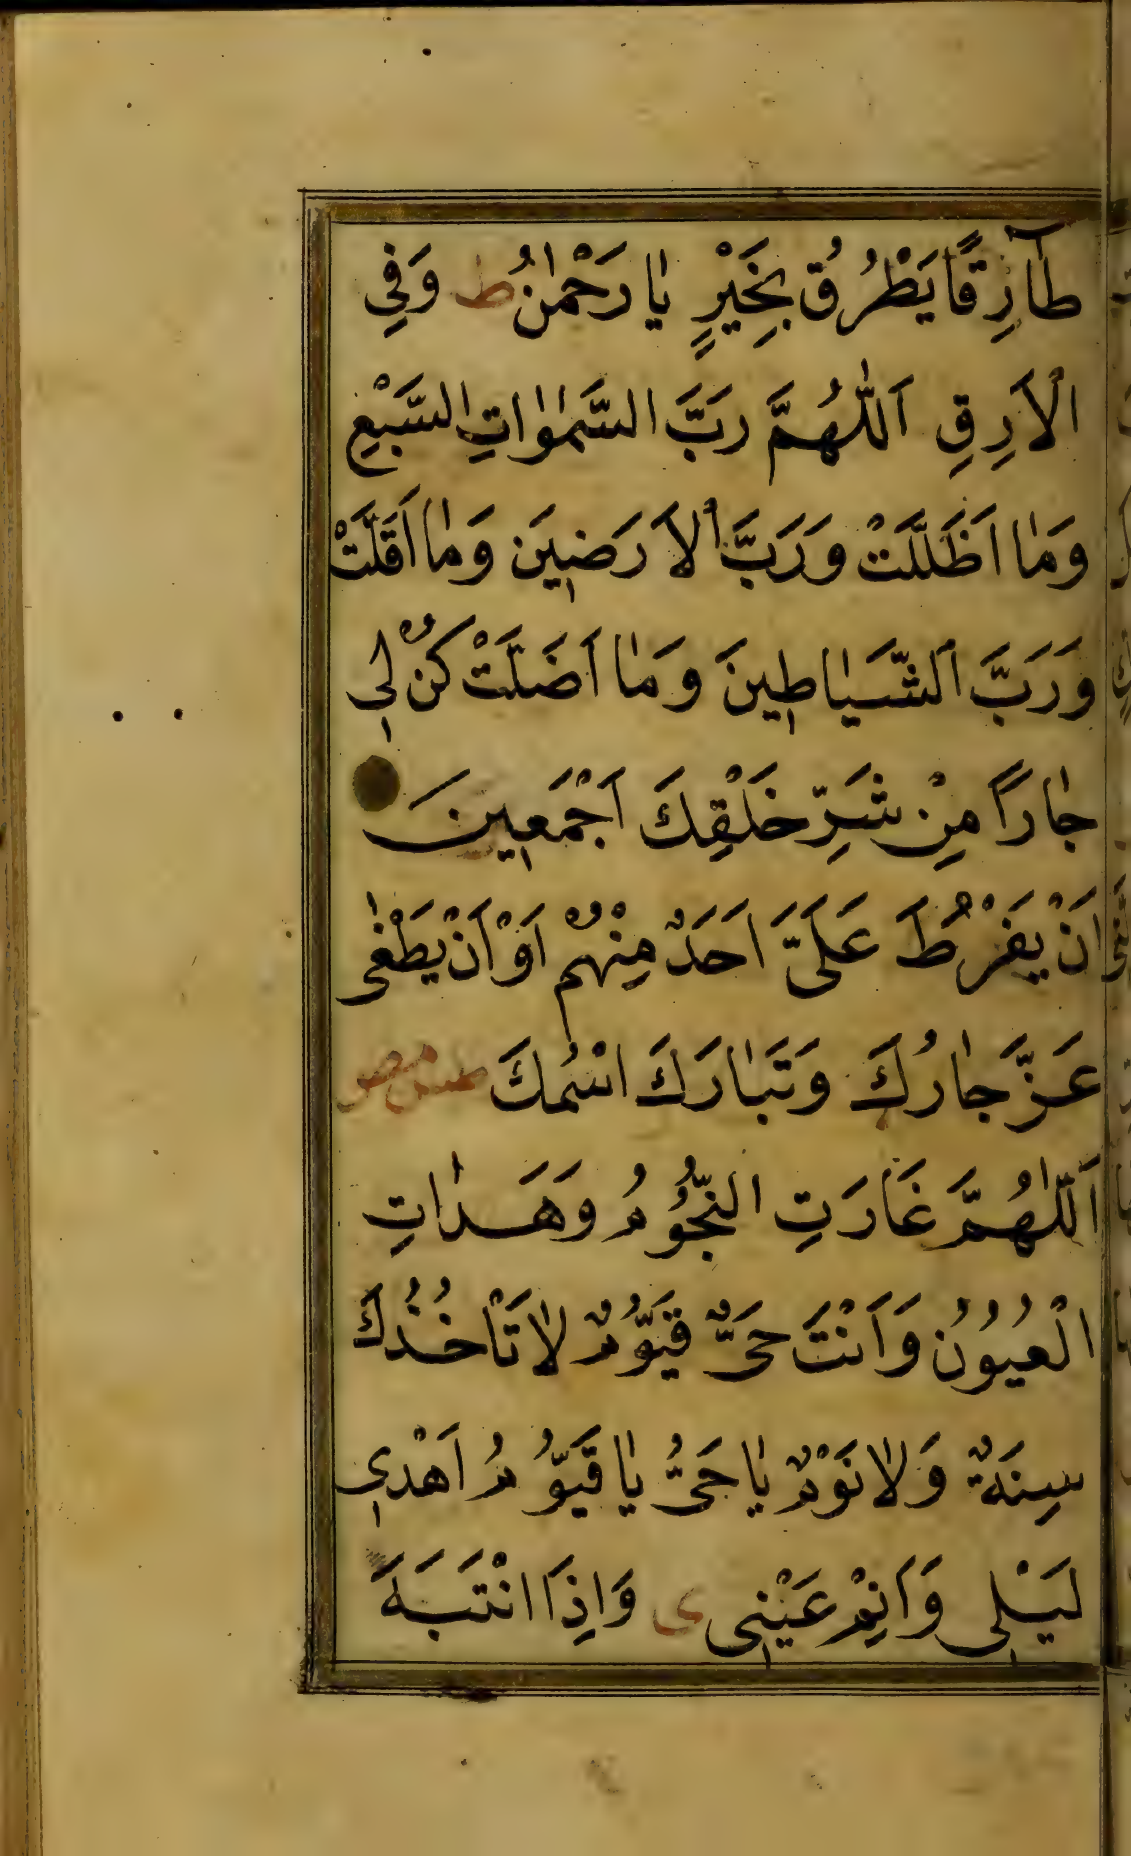 طَارِقًا يَطْرُقُ بِخَيْرٍ يَا رَحْمٰنُ ط وَفِي
الْاَرَقِ اَللّٰهُمَّ رَبَّ السَّمٰوَاتِ السَّبْعِ
وَمَا اَظَلَّتْ وَرَبَّ الْاَرَضِينَ وَمَا اَقَلَّتْ
وَرَبَّ الشَّيَاطِينَ وَمَا اَضَلَّتْ كُنْ لِي
جَارًا مِنْ شَرِّ خَلْقِكَ اَجْمَعِينَ
اَنْ يَفْرُطَ عَلَيَّ اَحَدٌ مِنْهُمْ اَوْ اَنْ يَطْغٰى
عَزَّ جَارُكَ وَتَبَارَكَ اسْمُكَ طس مص
اَللّٰهُمَّ غَارَتِ النُّجُومُ وَهَدَاَتِ
الْعُيُونُ وَاَنْتَ حَيٌّ قَيُّومٌ لَا تَاْخُذُكَ
سِنَةٌ وَلَا نَوْمٌ يَا حَيُّ يَا قَيُّومُ اَهْدِي
لَيْلِي وَاَنِمْ عَيْنِي ى وَاِذَا انْتَبَهَ